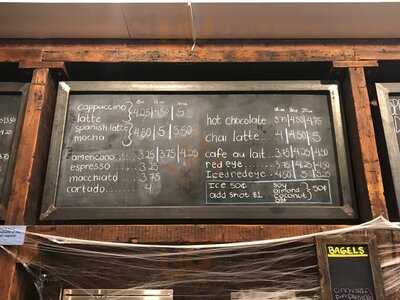 cappuccino
latte
4.25 4.50 5
spanish latte
mocha
4.50 5 5.50
americano..... 3.25 3.75 4.25
espresso....... 3.25
macchiato..... 3.75
cortado.......... 4
hot chocolate
chai latte 4 4.50 5
cafe au lait.... 3.75 4.25 4.50
red eye........
Iced redeye.. 4.50 5
ICE 50¢
add shot $1
soy
almond
coconut
50¢
BAGELS